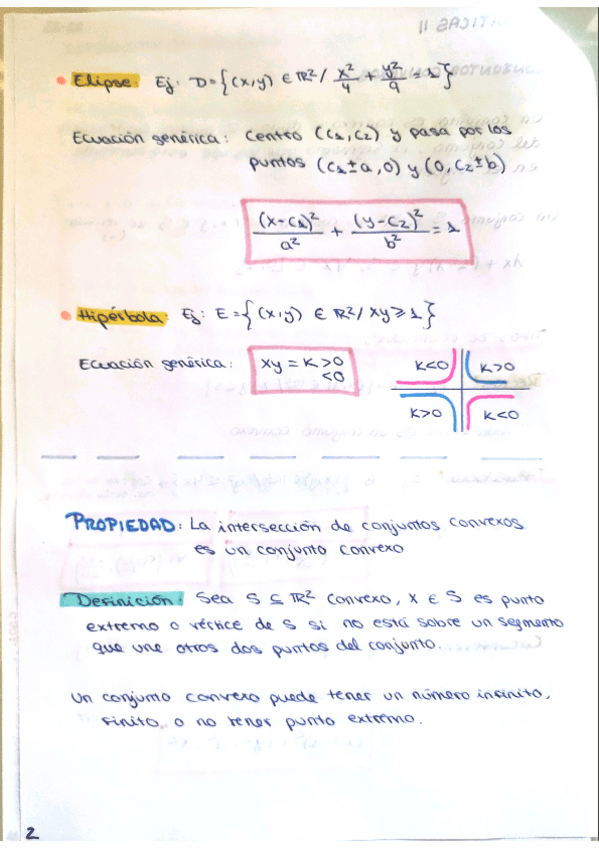 • Elipse: Ej: D={(x,y) ∈ ℝ²/ x²/4 + y²/9 = 1}
Ecuación genérica: Centro (C₁,C₂) y pasa por los
puntos (C₁±a,0) y (0,C₂±b)
(x-C₁)²/a² + (y-C₂)²/b² = 1
• Hipérbola: Ej: E={(x,y) ∈ ℝ²/ xy≥1}
Ecuación genérica: xy = K >0
<0
K<0 K>0
K>0 K<0
PROPIEDAD: La intersección de conjuntos convexos
es un conjunto convexo
Definición: Sea S ⊆ ℝ² convexo, x ∈ S es punto
extremo o vértice de S si no está sobre un segmento
que une otros dos puntos del conjunto.
Un conjunto convexo puede tener un número infinito,
finito, o no tener punto extremo.
2